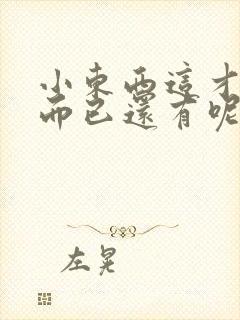 小東西這才
而已還有呢
左晃